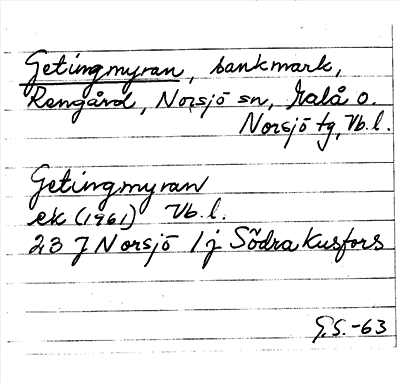 Getingmyran, sankmark,
Rengård, Norsjö sn, Malå o.
Norsjö tg, Vb. l.
Getingmyran
ek (1961) Vb. l.
23 J Norsjö 1 j Södra Kusfors
G.S.-63